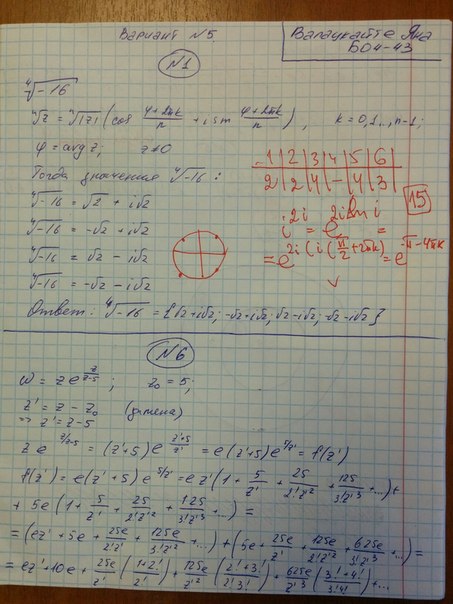 Вариант №5.
Валацкайте Яна
Б04-43
№1
⁴√-16
ⁿ√z = ⁿ√|z| (cos (φ+2πk)/n + i sin (φ+2πk)/n), k=0,1..,n-1;
φ = arg z; z≠0
Тогда значения ⁴√-16:
⁴√-16 = √2 + i√2
⁴√-16 = -√2 + i√2
⁴√-16 = √2 - i√2
⁴√-16 = -√2 - i√2
Ответ: ⁴√-16 = {√2+i√2; -√2+i√2; √2-i√2; -√2-i√2}
1 | 2 | 3 | 4 | 5 | 6
2 | 2 | 4 | - | 4 | 3
15
i^(2i) = e^(2i Ln i) =
= e^(2i(i(π/2+2πk)) = e^(-π-4πk)
№6
ω = z e^(z/(z-5)); z₀ = 5;
z' = z - z₀ (замена)
=> z' = z-5
z e^(z/(z-5)) = (z'+5) e^((z'+5)/z') = e(z'+5)e^(5/z') = f(z')
f(z') = e(z'+5)e^(5/z') = ez'(1 + 5/z' + 25/(2!z'²) + 125/(3!z'³) + ...) +
+ 5e(1 + 5/z' + 25/(2!z'²) + 125/(3!z'³) + ...) =
= (ez' + 5e + 25e/(2!z') + 125e/(3!z'²) + ...) + (5e + 25e/z' + 125e/(2!z'²) + 625e/(3!z'³) + ...) =
= ez' + 10e + 25e/z' ((1+2!)/2!) + 125e/z'² ((2!+3!)/(2!3!)) + 625e/z'³ ((3!+4!)/(3!4!)) + ...